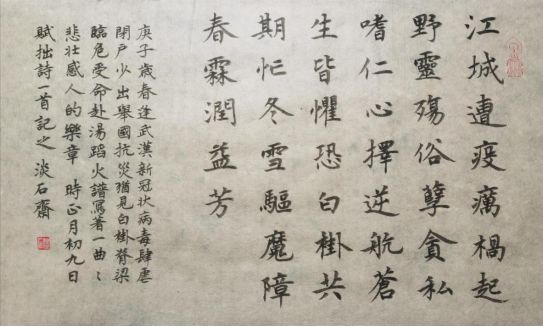 江城遭疫癘禍起
野靈殤俗孽貪私
嗜仁心擇逆航蒼
生皆懼恐白掛共
期忙冬雪驅魔障
春霖潤益芳
庚子歲春逢武漢新冠狀病毒肆虐
閉戶少出舉國抗災猶見白掛脊梁
臨危受命赴湯蹈火譜寫著一曲々
悲壯感人的樂章 時正月初九日
賦拙詩一首記之 淡石齋